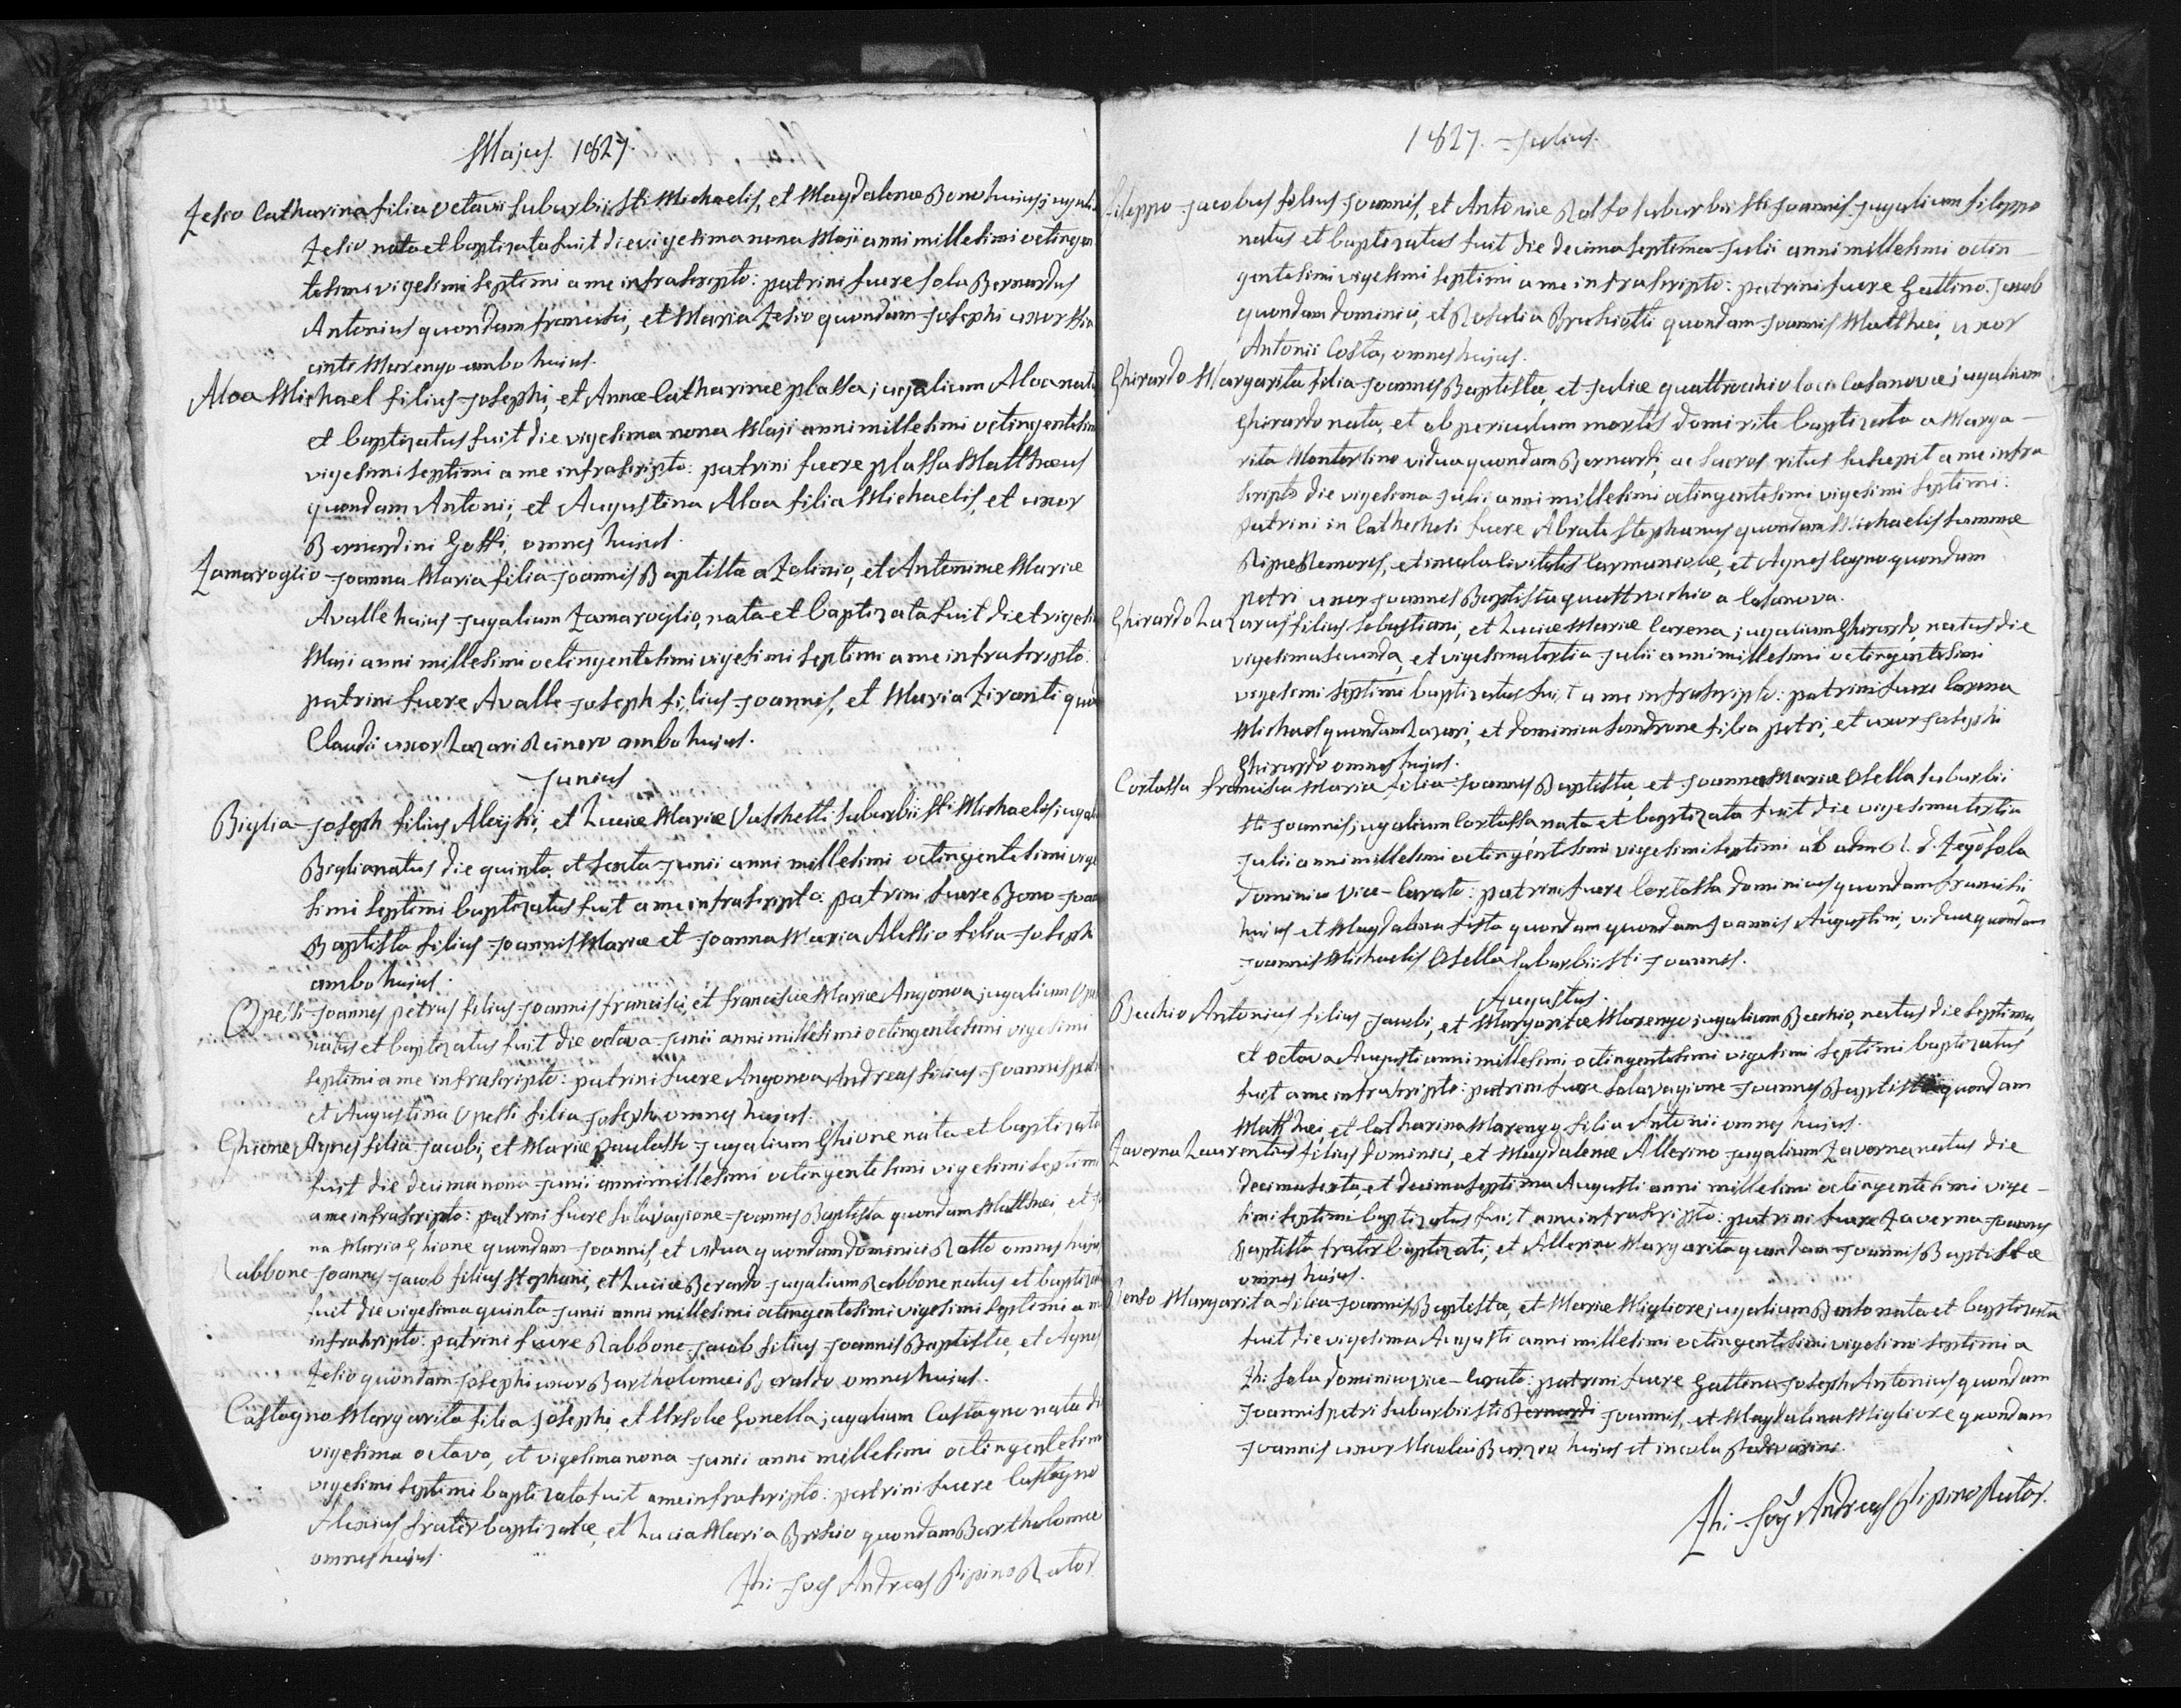 Majus. 1827.
Tesio Catharina filia Octavii suburbii Sti Michaelis, et Magdalenæ Bono huius jugali
Tesio nata et baptizata fuit die vigesima nona Maji anni millesimi octingen
tesimi vigesimi septimi a me infrascripto: patrini fuere Sola Bernardus
Antonius quondam Francisci, et Maria Tesio quondam Josephi uxor
Marengo ambo huius.
Aloa Michael filius Josephi, et Annæ Catharinæ Plassa, jugalium Aloa natu
et baptizatus fuit die vigesima nona Maji anni millesimi octingentesim
vigesimi septimi a me infrascripto: patrini fuere Plassa Matthæus
quondam Antonii, et Augustina Aloa filia Michaelis, et uxor
Bernardini Gossi, omnes huius.
Tamaroglio Joanna Maria filia Joannis Baptistæ a, et Antoninæ Mariæ
Avalle huius jugalium Tamaroglio, nata et baptizata fuit die trigesi
Maji anni millesimi octingentesimi vigesimi septimi a me infrascripto.
patrini fuere Avalle Joseph filius Joannis, et Maria Tiranti quo
Claudii uxor Lazari Reinero ambo huius.
Junius
Biglia Joseph filius Aloysii, et Luciæ Mariæ Vaschetti suburbii Sti Michaelis jugal
Biglia natus die quinta, et sexta Junii anni millesimi octingentesimi vige
simi septimi baptizatus fuit a me infrascripto: patrini fuere Bono Joan
Baptista filius Joannis Mariæ et Joanna Maria Alessio filia Joseph
ambo huius.
Opessi Joannes Petrus filius Joannis Francisci, et Franciscæ Mariæ Angonoa jugalium Ope
natus et baptizatus fuit die octava Junii anni millesimi octingentesimi vigesimi
septimi a me infrascripto: patrini fuere Angonoa Andreas filius Joannis Petri
et Augustina Opessi filia Joseph omnes huius.
Ghione Agnes filia Jacobi, et Mariæ Paulasso jugalium Ghione nata et baptizata
fuit die decima nona Junii anni millesimi octingentesimi vigesimi septimi
a me infrascripto: patrini fuere Salavagione Joannes Baptista quondam Matthæi, et Jo
na Maria Ghione quondam Joannis, et vidua quondam Dominici Ratto omnes huius
Rabbone Joannes Jacob filius Stephani, et Luciæ Berardo jugalium Rabbone natus et baptizat
fuit die vigesima quinta Junii anni millesimi octingentesimi vigesimi septimi a m
infrascripto: patrini fuere Rabbone Jacob filius Joannis Baptistæ, et Agnes
Tesio quondam Josephi uxor Bartholomæi Beraldo omnes huius.
Castagno Margarita filia Josephi, et Ursolæ Gonella jugalium Castagno nata di
vigesima octava, et vigesima nona Junii anni millesimi octingentesim
vigesimi septimi baptizata fuit a me infrascripto: patrini fuere Castagno
Alexius frater baptizatæ, et Lucia Maria Brissio quondam Bartholomæi
omnes huius.
Andreas Pipino Rector
1827. Julius.
Fileppo Jacobus filius Joannis, et Antoniæ Rosso suburbii Sti Joannis jugalium Fileppo
natus et baptizatus fuit die decima septima Julii anni millesimi octin-
gentesimi vigesimi septimi a me infrascripto: patrini fuere Gattino Jacob
quondam Dominici, et Rosalia Bruschotti quondam Joannis Matthæi, uxor
Antonii Costa, omnes huius.
Ghirardo Margarita filia Joannis Baptistæ, et Juliæ Quattrochio loci Casanovæ jugalium
Ghirardo nata, et ob periculum mortis domi rite baptizata a Marga-
rita Montersino vidua quondam Bernardi, ac sacros ritus suscepit a me infra
scripto die vigesima Julii anni millesimi octingentesimi vigesimi septimi.
patrini in Cathechesi fuere Abrate Stephanus quondam Michaelis Summæ
Ripæ Nemoris, et incola Civitatis Carmaniolæ, et Agnes Cagno quondam
Petri uxor Joannis Baptista Quattrochio a Casanova.
Ghirardo Lazarus filius Sebastiani, et Luciæ Mariæ Carena, jugalium Ghirardo, natus die
vigesima secunda, et vigesima tertia Julii anni millesimi octingentesimi
vigesimi septimi baptizatus fuit a me infrascripto: patrini fuere Carena
Michael quondam Lazari, et Dominica Sandrone filia Petri, et uxor Josephi
Ghirardo omnes huius.
Cortassa Francisca Maria filia Joannis Baptistæ, et Joannæ Mariæ Osella suburbii
Sti Joannis, jugalium Cortassa nata et baptizata fuit die vigesima tertia
Julii anni millesimi octingentesimi vigesimi septimi ab Sola
Dominico Vice-Curato: patrini fuere Cortassa Dominicus quondam Francisci
huius et Magdalena Testa quondam quondam Joannis Augustini, vidua quondam
Joannis Michaelis Osella suburbii Sti Joannis.
Augustus.
Becchio Antonius filius Jacobi, et Margaritæ Marengo jugalium Becchio, natus die septima,
et octava Augusti anni millesimi octingentesimi vigesimi septimi baptizatus
fuit a me infrascripto: patrini fuere Salavagione Joannes Baptista quondam
Matthæi, et Catharina Marengo filia Antonii omnes huius.
Taverna Laurentius filius Dominici, et Magdalenæ Allerino jugalium Taverna natus die
decima sexta, et decima septima Augusti anni millesimi octingentesimi vige-
simi septimi baptizatus fuit a me infrascripto: patrini fuere Taverna Joannes
Baptista frater baptizati, et Allerino Margarita quondam Joannis Baptistæ
omnes huius.
Benso Margarita filia Joannis Baptistæ, et Mariæ Migliore jugalium Benso nata et baptizata
fuit die vigesima Augusti anni millesimi octingentesimi vigesimi septimi a
Sola Dominico Vice-Curato: patrini fuere Gattino Joseph Antonius quondam
Joannis Petri suburbii Sti Bernardi Joannis, et Magdalena Migliore quondam
Joannis uxor Nicolai huius et incola
Andreas Pipino Rector.